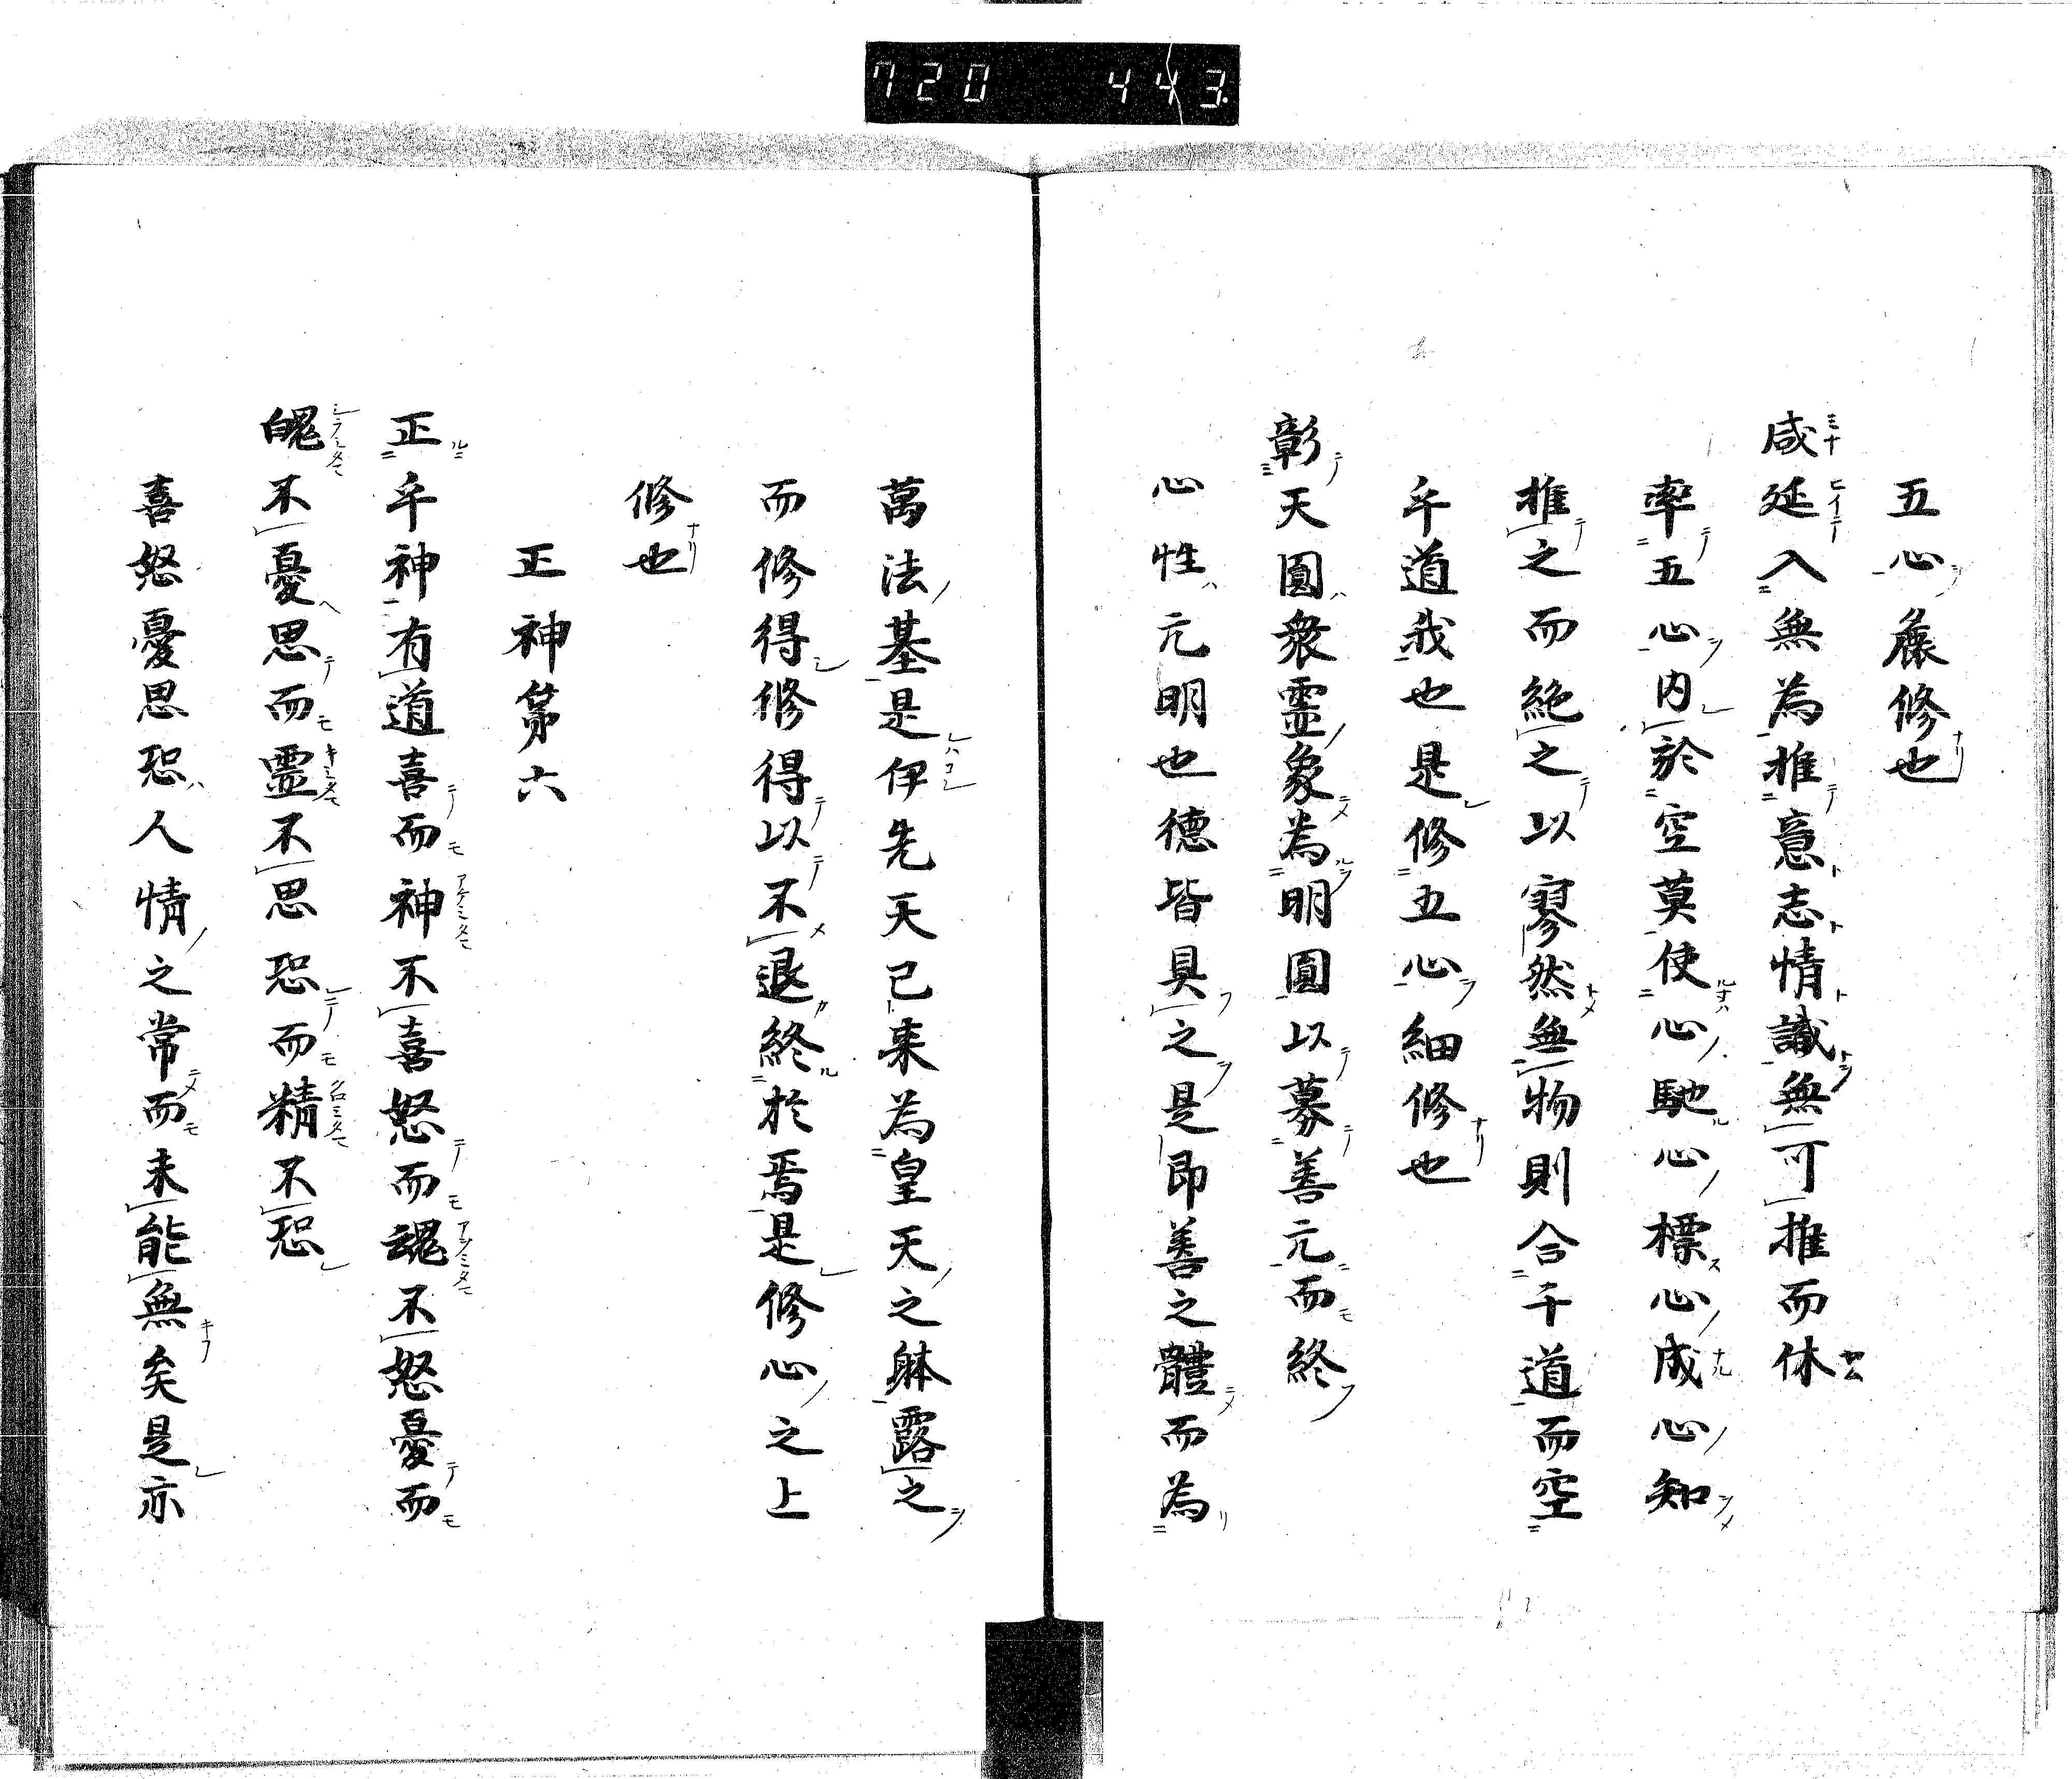 720 443
五心麁修也
咸延入無為推意志情識無可推而休
率五心内於空莫使心馳心標心成心知
推之而絶之以寥然無物則合干道而空
乎道我也是修五心細修也
彰天圓衆霊象為明圓以募善元而終
心性元明也德皆具之是即善之體而為
萬法基是伊先天已来為皇天之躰露之
而修得修得以不退終於焉是修心之上
修也
正神第六
正乎神有道喜而神不喜怒而魂不怒憂而
魄不憂思而霊不思恐而精不恐
喜怒憂思恐人情之常而未能無矣是亦